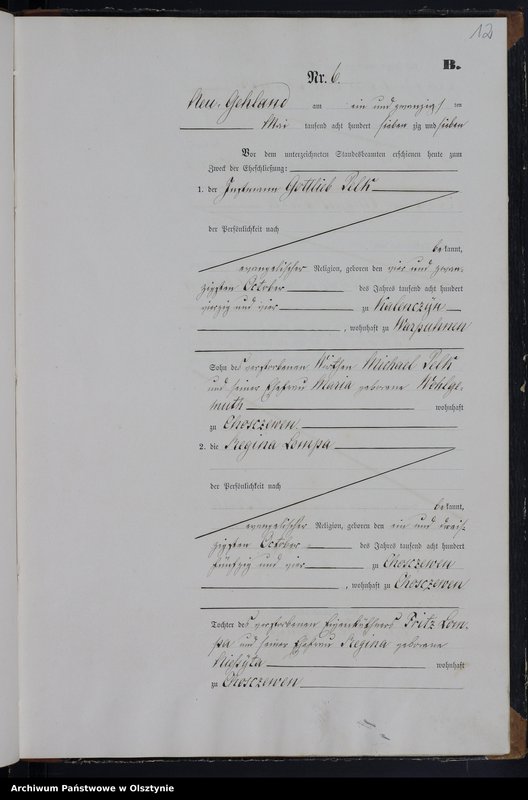 12
B.
Nr. 6.
Neu-Gehland am ein und zwanzig/ ten
Mai tausend acht hundert sieben zig und sieben
Vor dem unterzeichneten Standesbeamten erschienen heute zum
Zweck der Eheschließung:
1. der Instmann Gottlieb Pelk
der Persönlichkeit nach
bekannt,
evangelischer Religion, geboren den vier und zwan-
zigsten October des Jahres tausend acht hundert
vierzig und vier zu Kalenczyn
, wohnhaft zu Warpuhnen
Sohn des verstorbenen Wirthen Michael Pelk
und seiner Ehefrau Maria geborene Wohlge-
muth wohnhaft
zu Choszewen
2. die Regina Lompa
der Persönlichkeit nach
bekannt,
evangelischer Religion, geboren den ein und dreis-
zigsten October des Jahres tausend acht hundert
fünfzig und vier zu Choszewen
, wohnhaft zu Choszewen
Tochter des verstorbenen Eigenkäthners Fritz Lom-
pa und seiner Ehefrau Regina geborene
wohnhaft
zu Choszewen
Archiwum Państwowe w Olsztynie